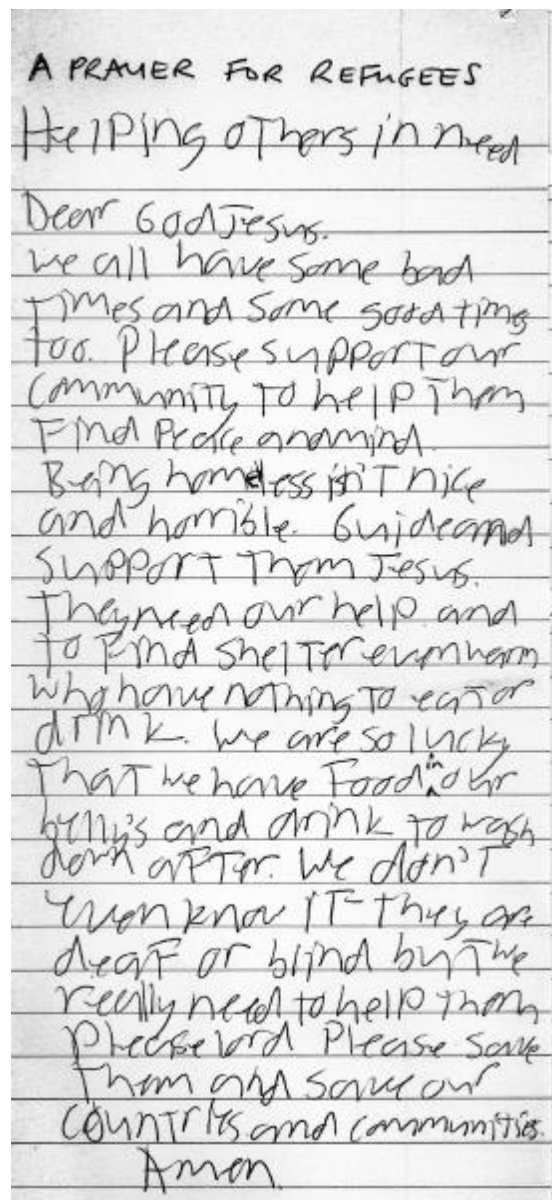 A PRAYER FOR REFUGEES
Helping others in need
Dear God Jesus.
we all have some bad
times and some good times
too. Please support our
community to help them
find peace and mind.
Being homeless isn't nice
and horrible. Guide and
support them Jesus.
They need our help and
to find shelter even
who have nothing to eat or
drink. we are so lucky
that we have food in our
belly's and drink to wash
down after. We don't
even know if they are
deaf or blind but we
really need to help them
please lord please save
them and save our
countries and communities.
Amen.